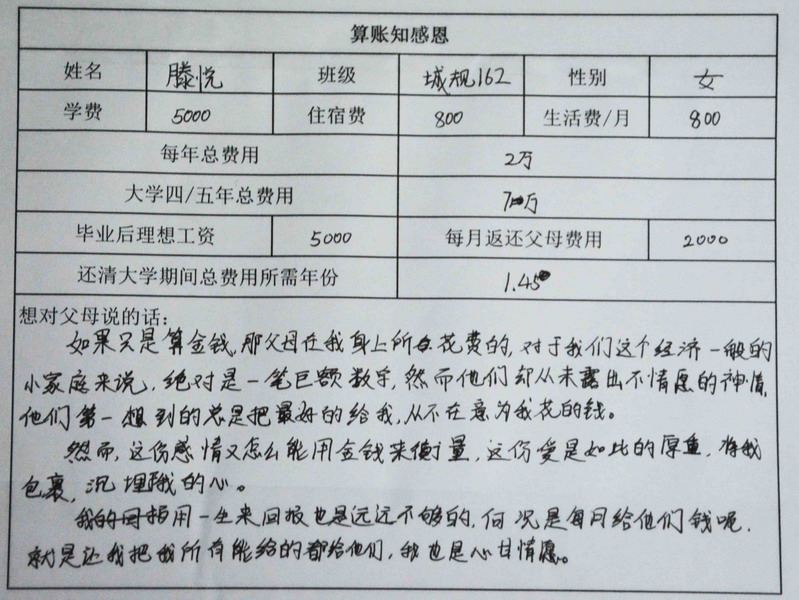 算账知感恩
姓名 滕悦 班级 城规162 性别 女
学费 5000 住宿费 800 生活费/月 800
每年总费用 2万
大学四/五年总费用 7万
毕业后理想工资 5000 每月返还父母费用 2000
还清大学期间总费用所需年份 1.45
想对父母说的话:
如果只是算金钱,那父母在我身上所花费的,对于我们这个经济一般的
小家庭来说,绝对是一笔巨额数字,然而他们却从未露出不情愿的神情,
他们第一想到的总是把最好的给我,从不在意为我花的钱。
然而,这份感情又怎么能用金钱来衡量,这份爱是如此的厚重,将我
包裹,沉埋我的心。
我用一生来回报也是远远不够的,何况是每月给他们钱呢,
就是让我把我所有能给的都给他们,我也是心甘情愿。